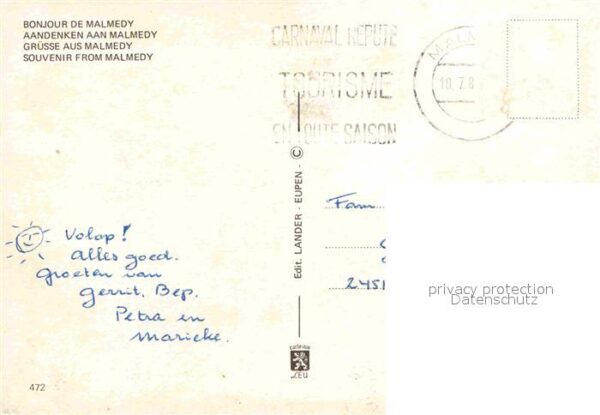 BONJOUR DE MALMEDY
AANDENKEN AAN MALMEDY
GRÜSSE AUS MALMEDY
SOUVENIR FROM MALMEDY
CARNAVAL REPUTE
TOURISME
EN TOUTE SAISON
MALM
10.7.8
Edit. LANDER - EUPEN - ©
Volop!
Alles goed.
Groeten van
Gerrit, Bep,
Petra en
Marieke.
Fam
2451
privacy protection
Datenschutz
472